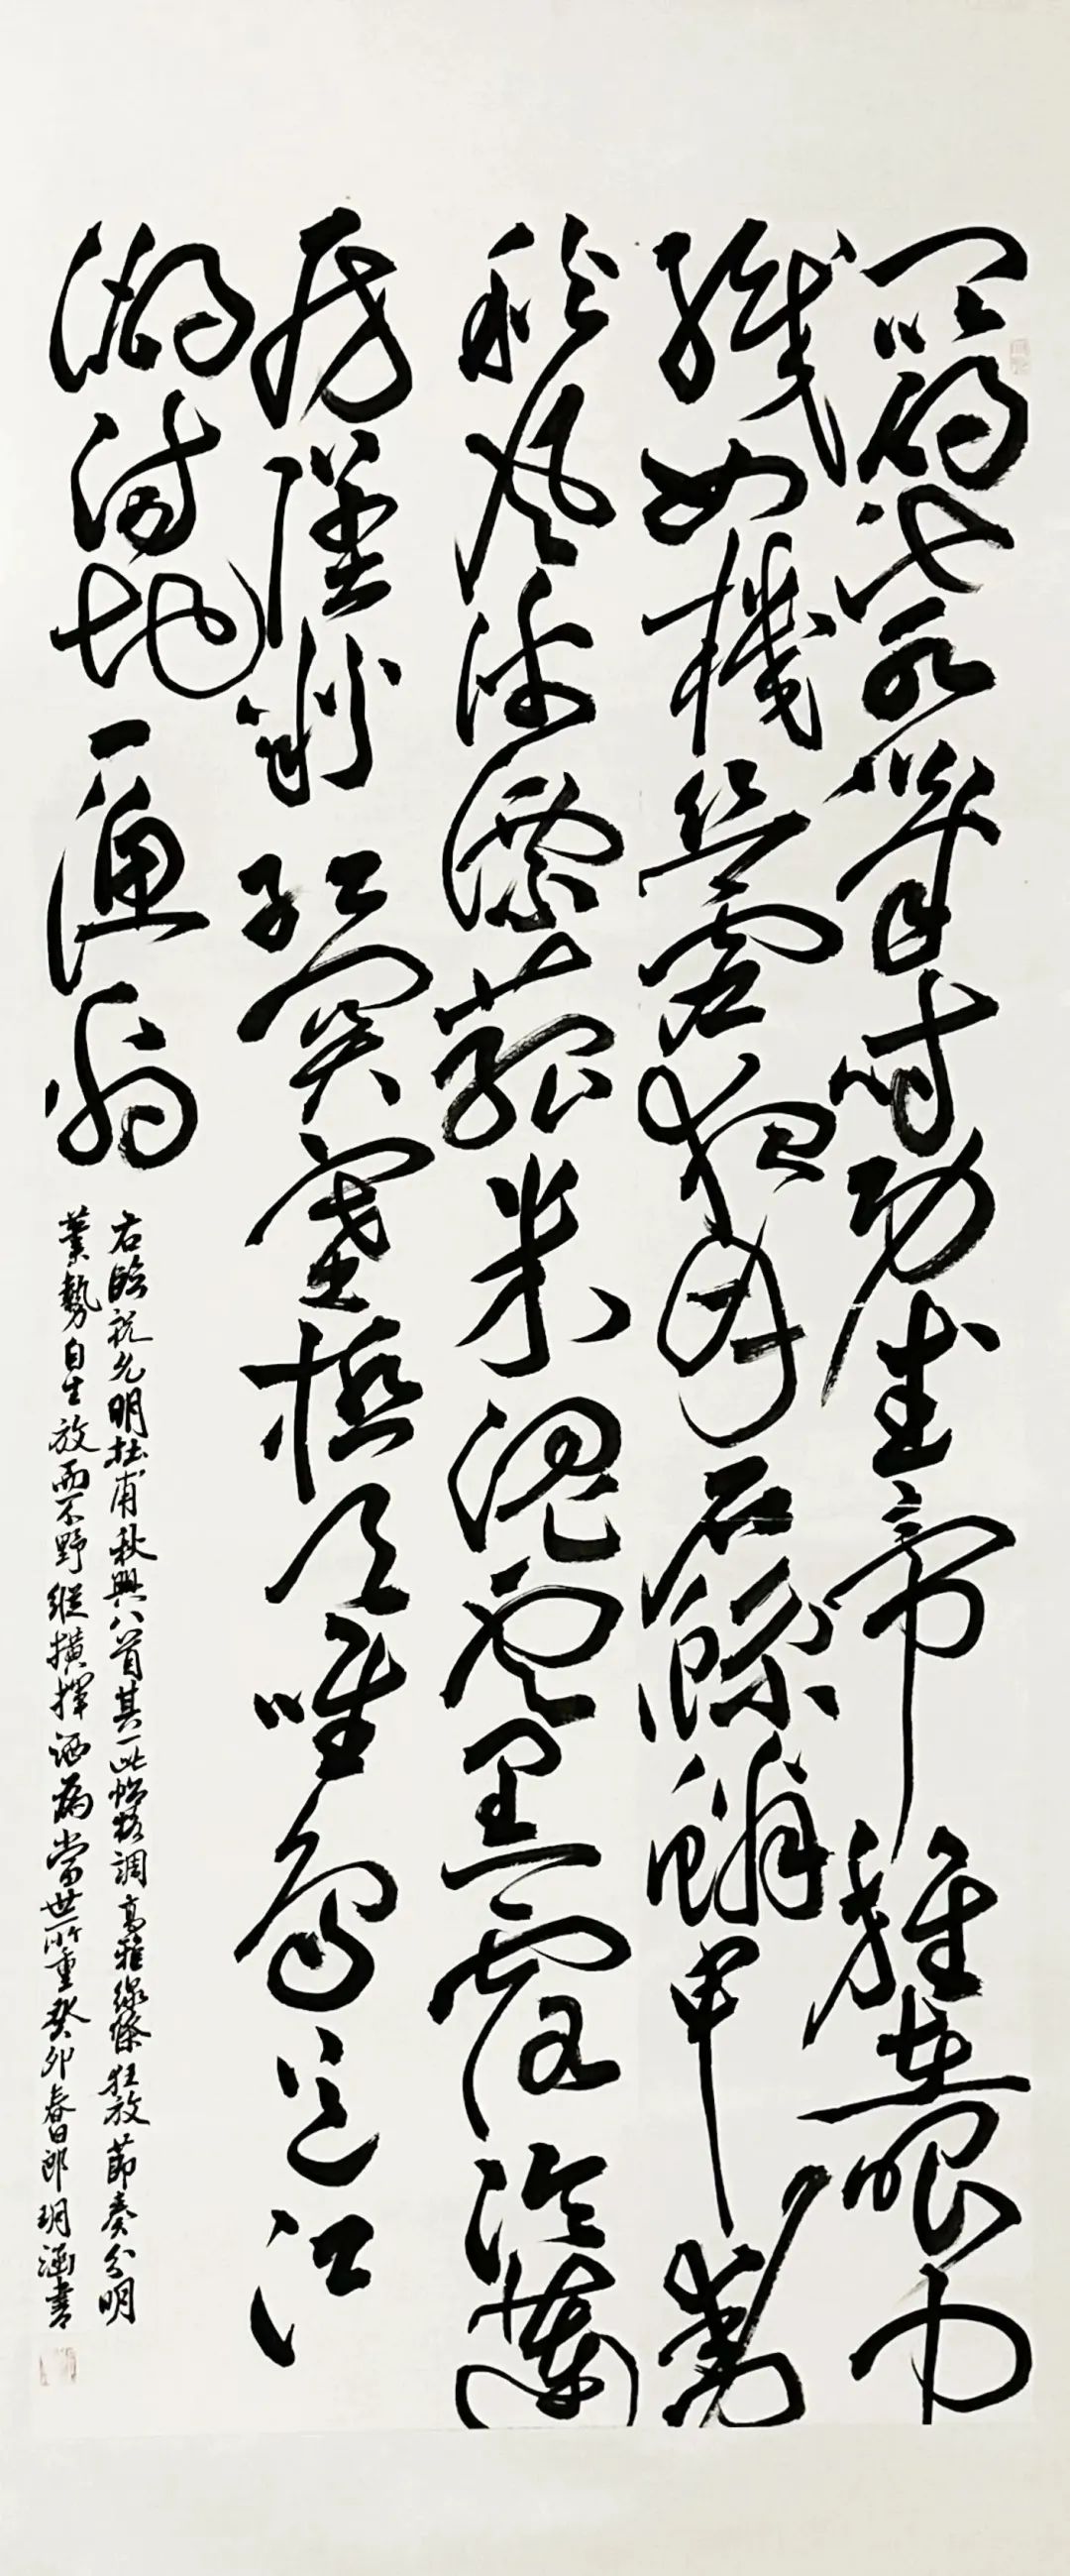 昆明池水漢時功武帝旌在眼中
織女機絲虛夜月石鯨鱗甲動
秋風波漂菰米沉雲黑露冷蓮
房墜粉紅關塞極天唯鳥道江
湖滿地一漁翁
右臨祝允明杜甫秋興八首其一此帖格調高雅線條狂放節奏分明
筆勢自生放而不野縱橫揮洒為當世所重癸卯春日郎玥涵書